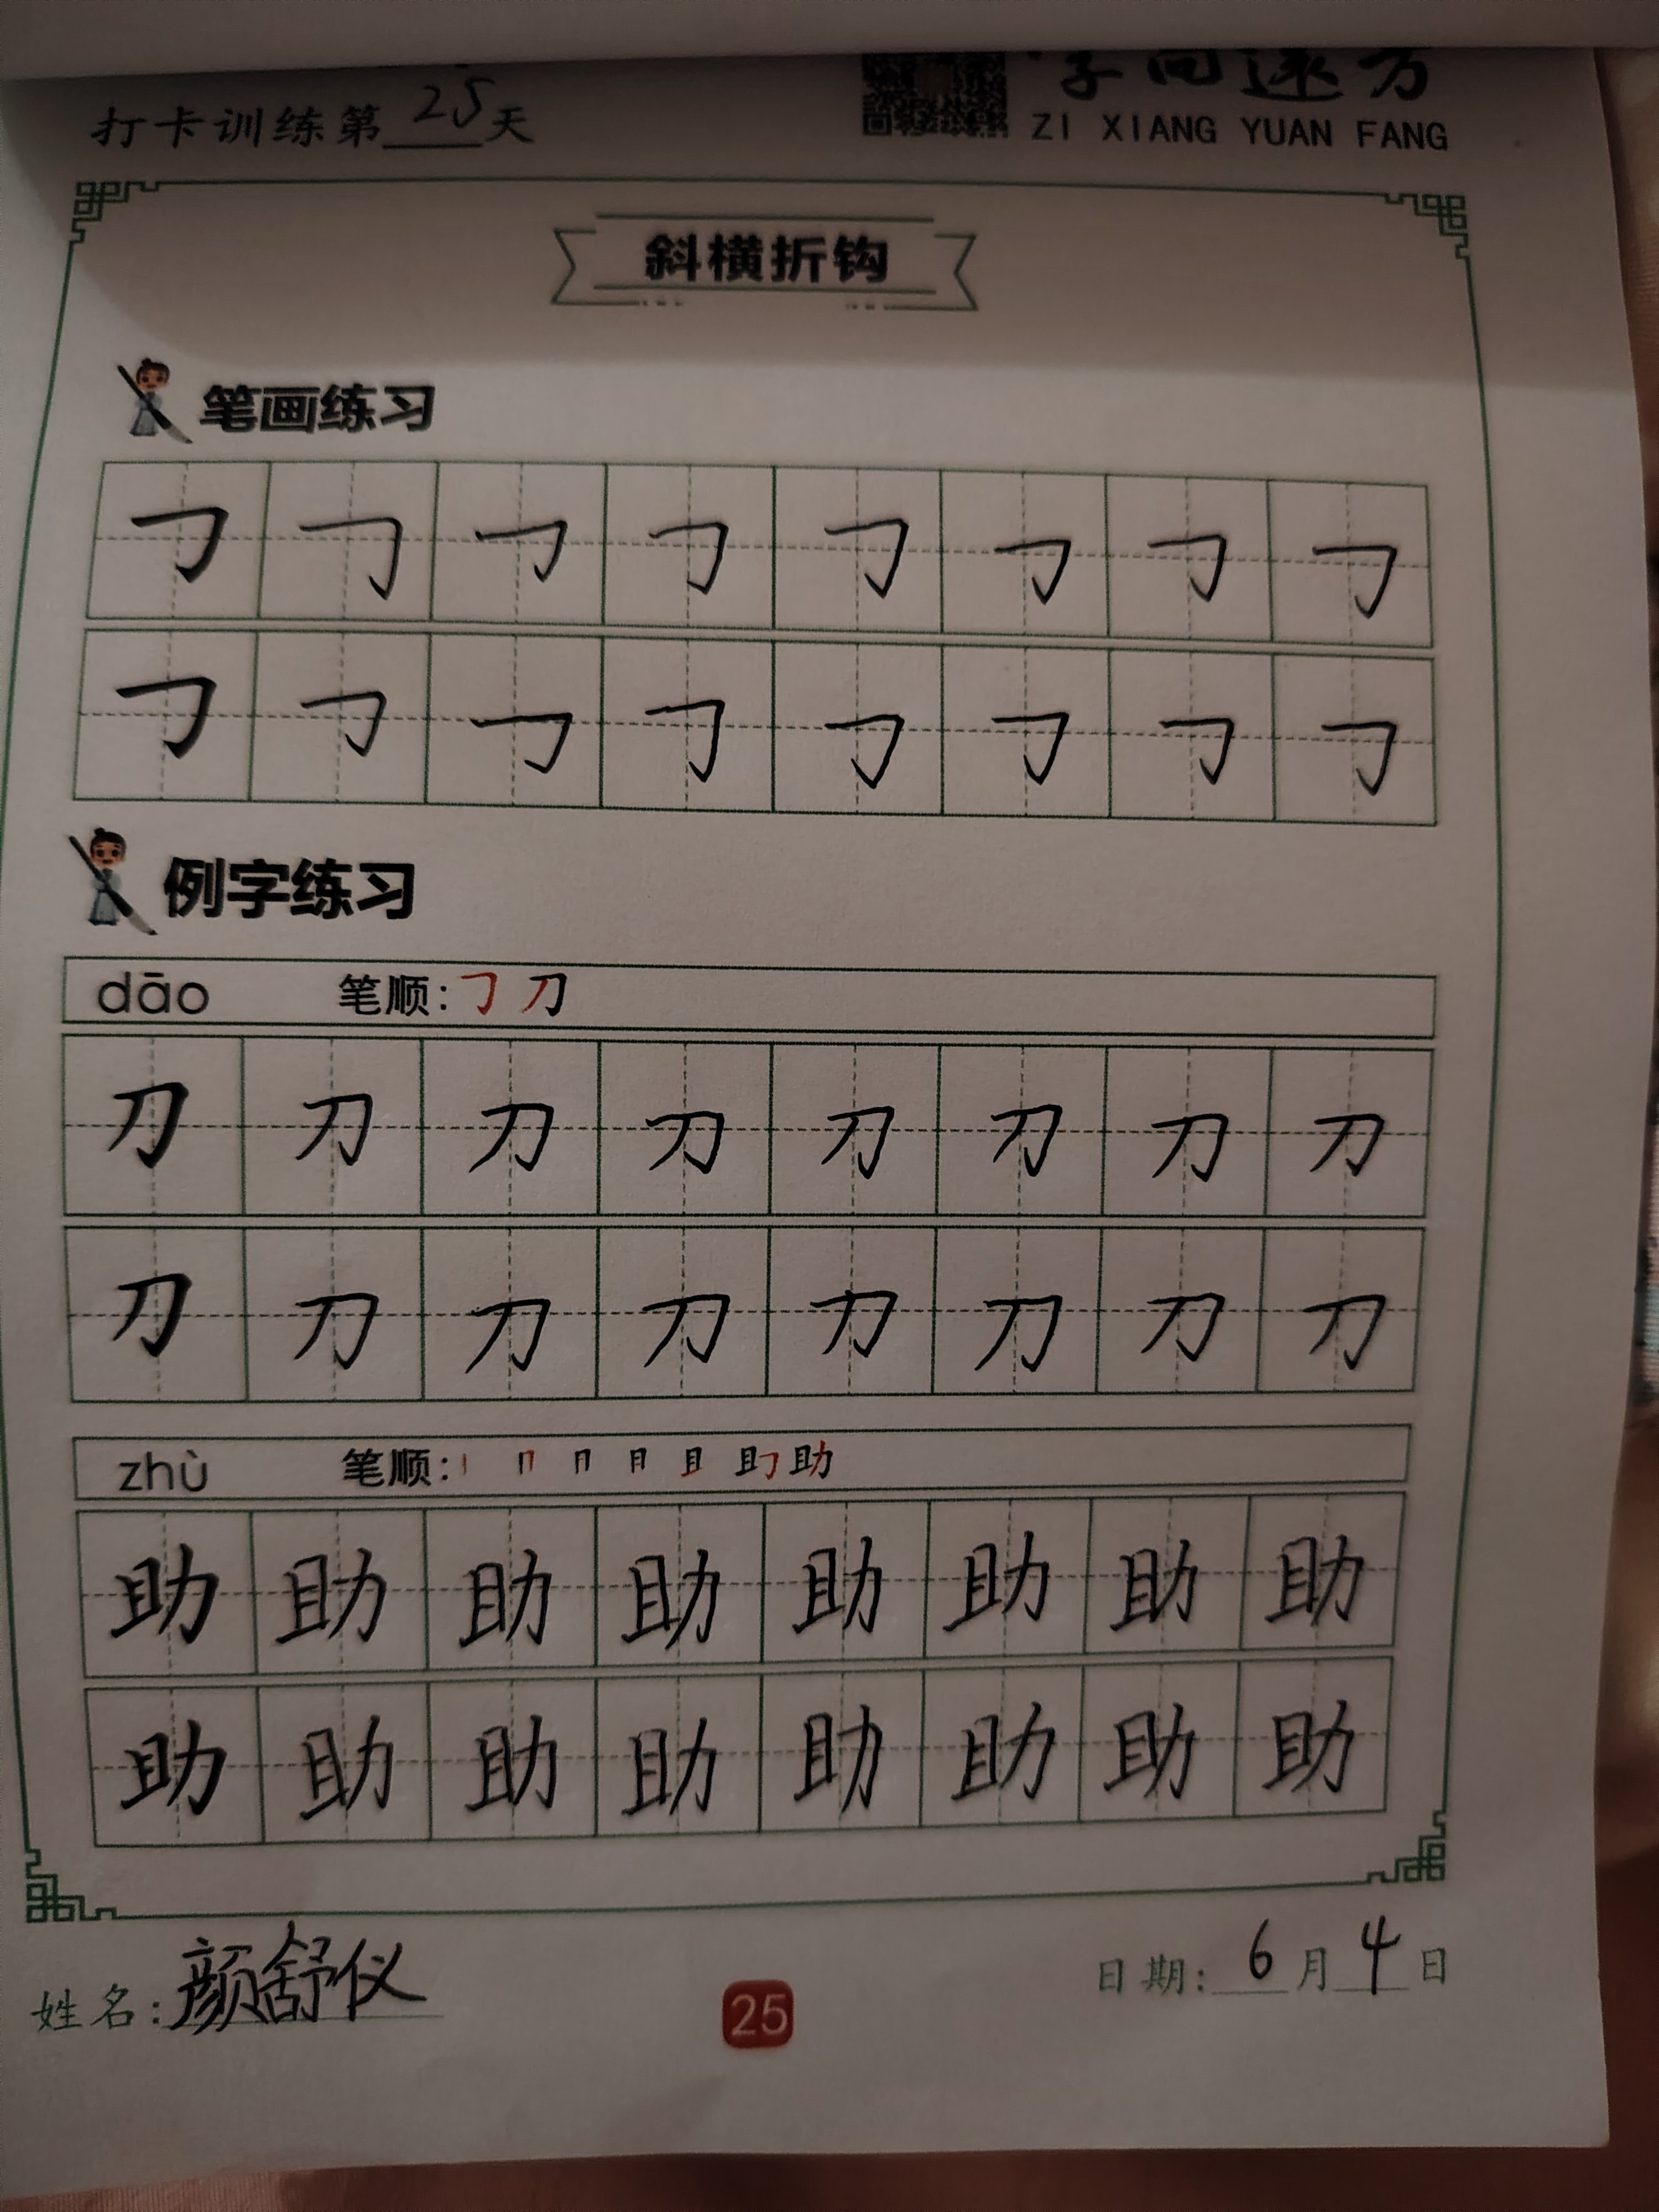 打卡训练第25天
字向远方
ZI XIANG YUAN FANG
斜横折钩
笔画练习
㇆ ㇆ ㇆ ㇆ ㇆ ㇆ ㇆ ㇆
㇆ ㇆ ㇆ ㇆ ㇆ ㇆ ㇆ ㇆
例字练习
dāo 笔顺:㇆ 刀
刀 刀 刀 刀 刀 刀 刀 刀
刀 刀 刀 刀 刀 刀 刀 刀
zhù 笔顺:丨 冂 月 且 助
助 助 助 助 助 助 助 助
助 助 助 助 助 助 助 助
姓名:颜舒仪
25
日期:6月4日